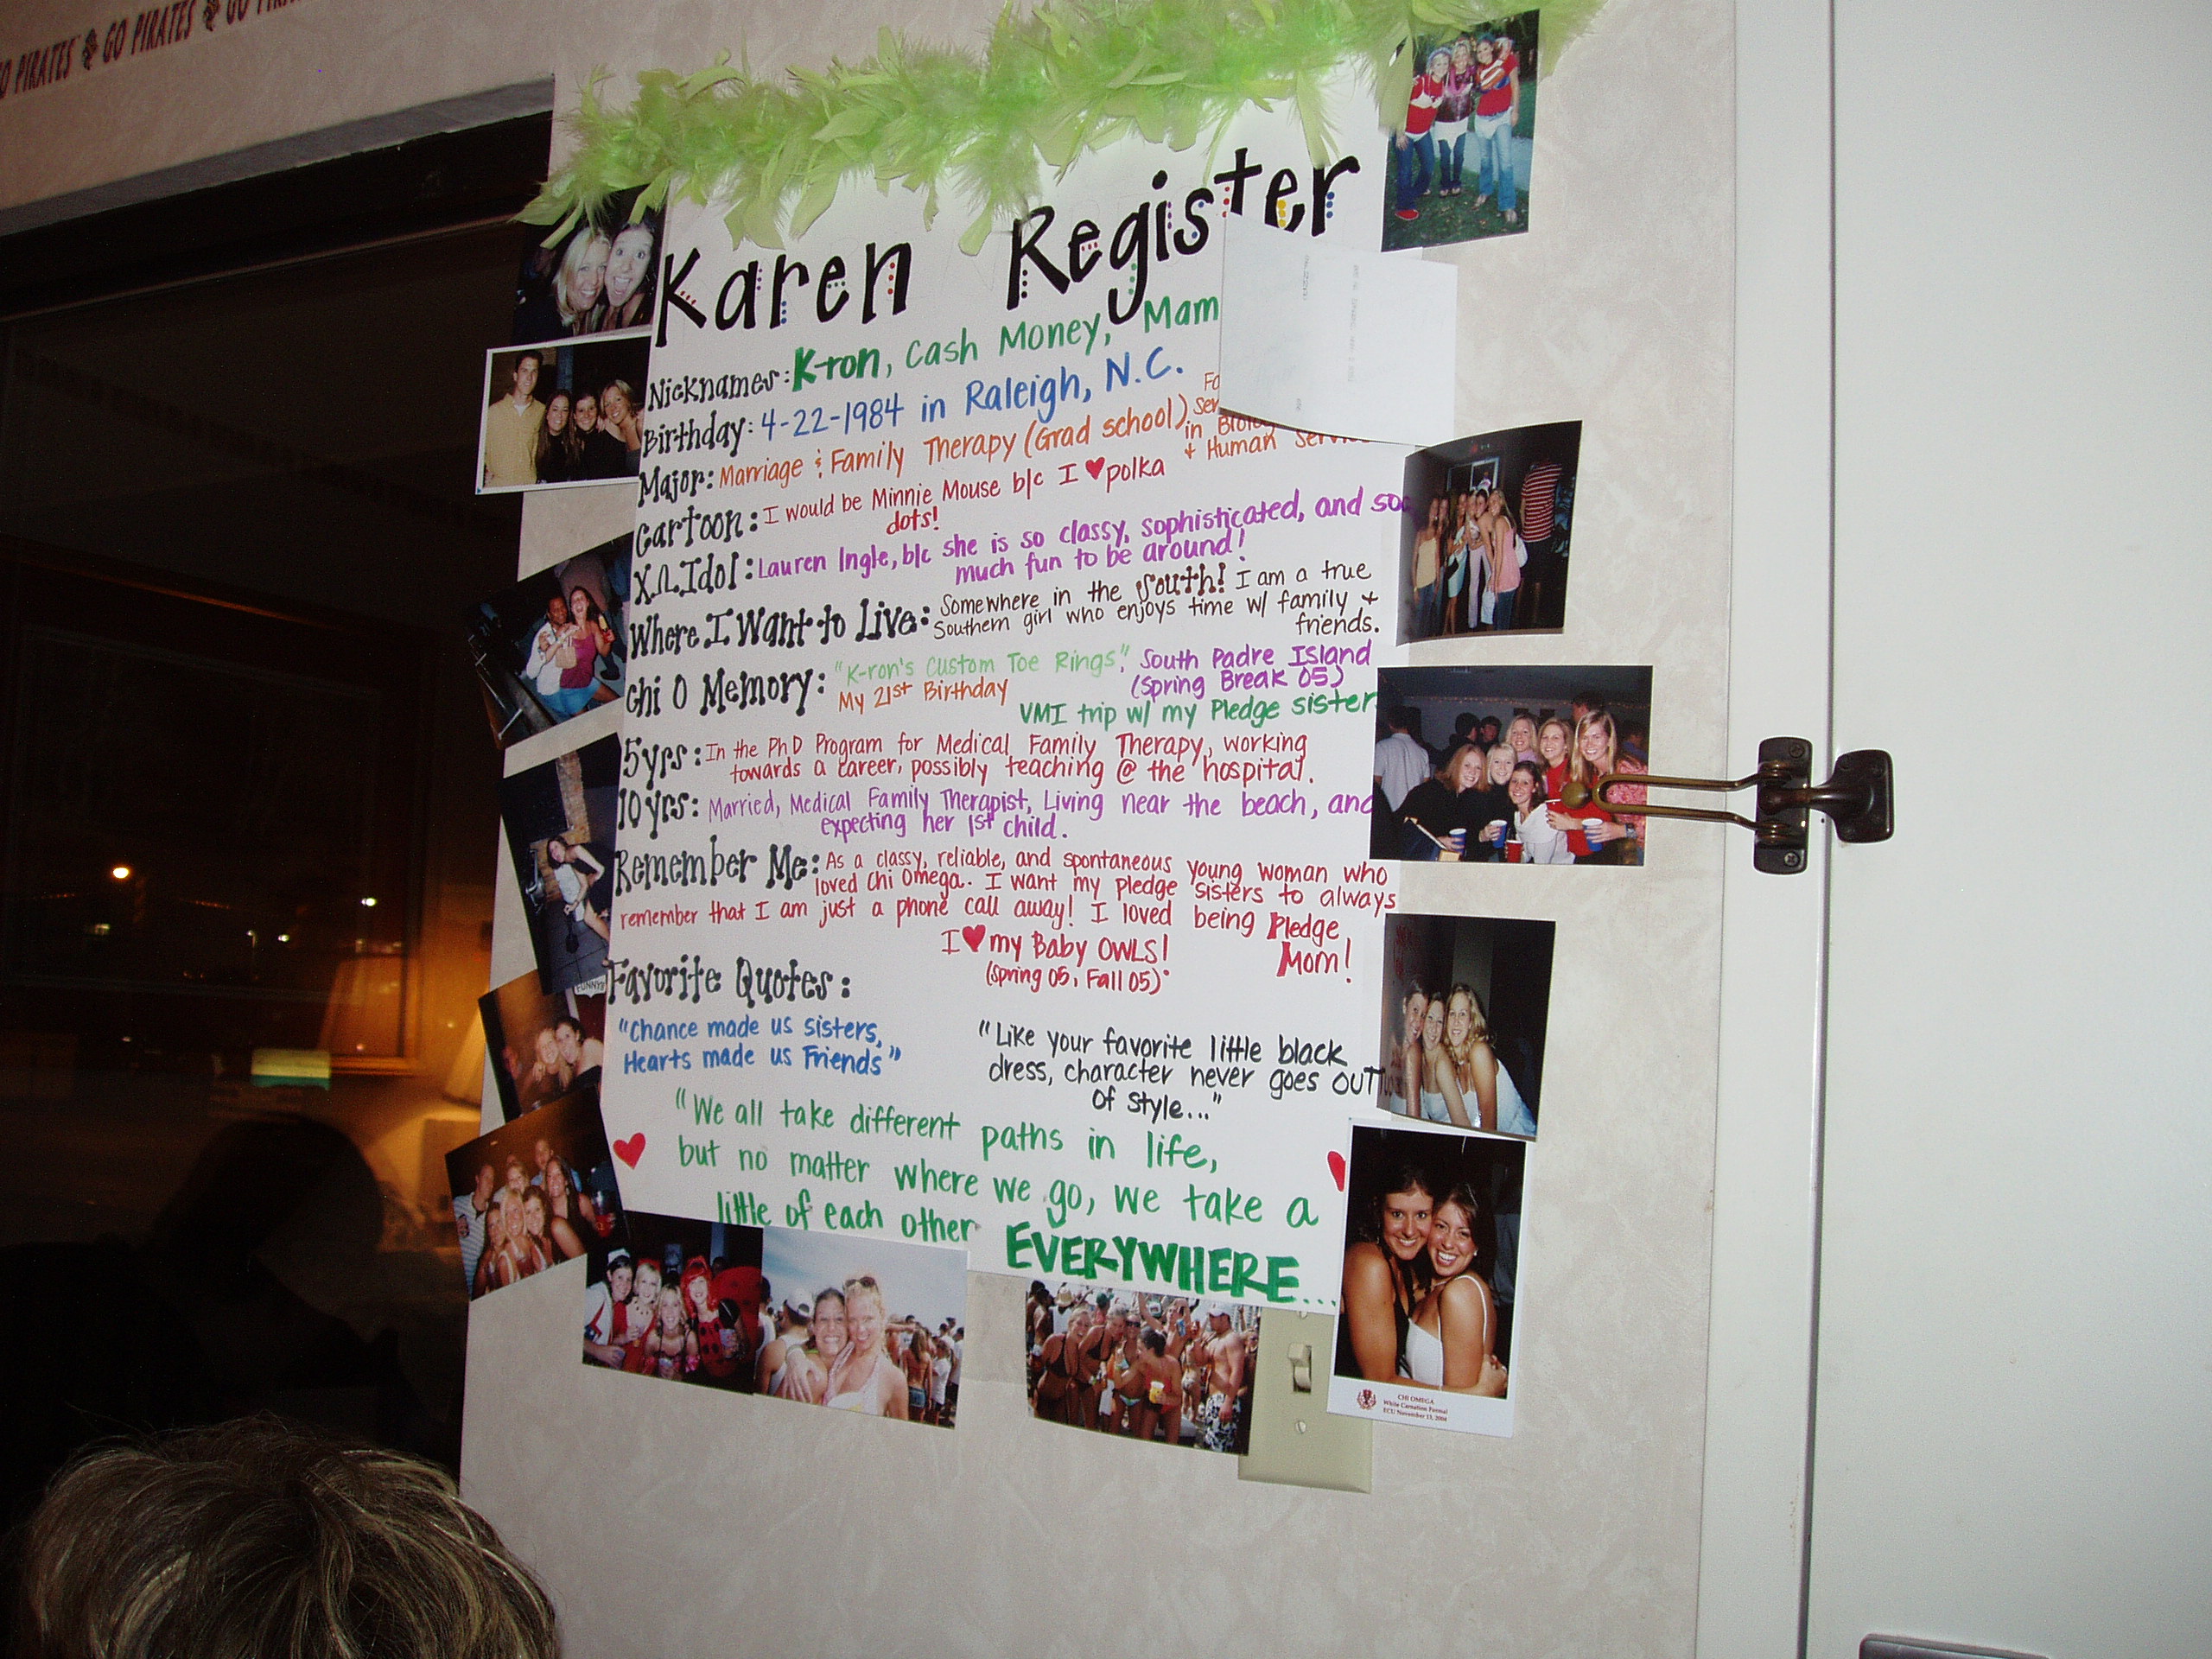 GO PIRATES GO PIRATES GO
Karen Register
Nicknames: K-ron, Cash Money, Mam
Birthday: 4-22-1984 in Raleigh, N.C.
Major: Marriage & Family Therapy (Grad school)
in
+ Human
Cartoon: I would be Minnie Mouse b/c I ♥ polka
dots!
XΩ Idol: Lauren Ingle, b/c she is so classy, sophisticated, and soo
much fun to be around!
Where I Want to Live: Somewhere in the South! I am a true
Southern girl who enjoys time w/ family +
friends.
Chi O Memory: "K-ron's Custom Toe Rings", South Padre Island
My 21st Birthday (Spring Break 05)
VMI trip w/ my Pledge sister
5 yrs: In the PhD Program for Medical Family Therapy, working
towards a career, possibly teaching @ the hospital.
10 yrs: Married, Medical Family Therapist, Living near the beach, and
expecting her 1st child.
Remember Me: As a classy, reliable, and spontaneous young woman who
loved Chi Omega. I want my pledge sisters to always
remember that I am just a phone call away! I loved being Pledge
Mom!
I ♥ my Baby OWLS!
(Spring 05, Fall 05)
Favorite Quotes:
"Chance made us sisters,
Hearts made us Friends"
"Like your favorite little black
dress, character never goes OUT
of style..."
"We all take different paths in life,
but no matter where we go, we take a
little of each other EVERYWHERE...
CHI OMEGA
White Carnation Formal
ECU November 13, 2004